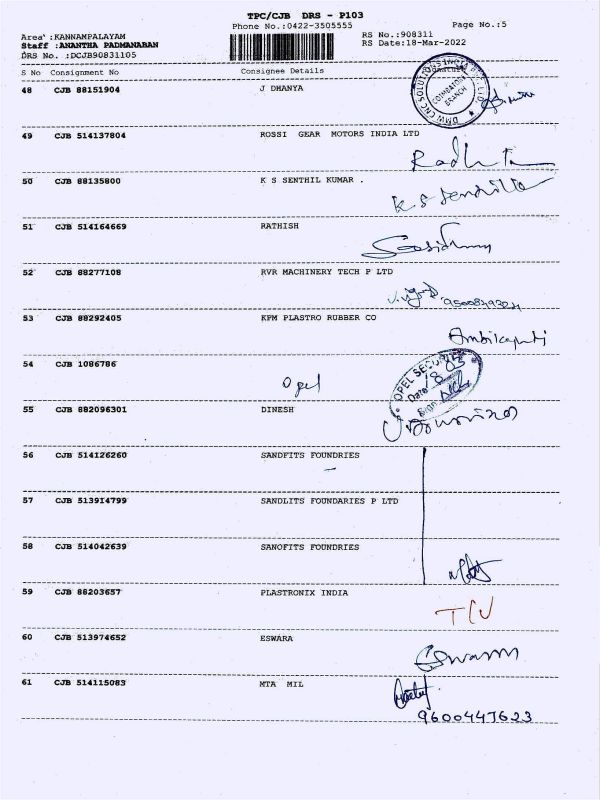 TPC/CJB DRS - P103
Phone No.:0422-3505555
Page No.:5
Area :KANNAMPALAYAM
RS No.:908311
Staff :ANANTHA PADMANABAN
RS Date:18-Mar-2022
DRS No. :DCJB90831105
S No Consignment No Consignee Details
48 CJB 88151904 J DHANYA
DMW CNC SOLUTIONS INDIA PVT LTD
COIMBATORE
BRANCH
49 CJB 514137804 ROSSI GEAR MOTORS INDIA LTD
50 CJB 88135800 K S SENTHIL KUMAR .
K S Senthil
51 CJB 514164669 RATHISH
52 CJB 88277108 RVR MACHINERY TECH P LTD
53 CJB 88292405 KPM PLASTRO RUBBER CO
54 CJB 1086786
Opel
OPEL SECURITY
Date 18/03
Sign
55 CJB 882096301 DINESH
56 CJB 514126260 SANDFITS FOUNDRIES
57 CJB 513914799 SANDLITS FOUNDARIES P LTD
58 CJB 514042639 SANOFITS FOUNDRIES
59 CJB 88203657 PLASTRONIX INDIA
60 CJB 513974652 ESWARA
Eswaran
61 CJB 514115083 MTA MIL
9600447623